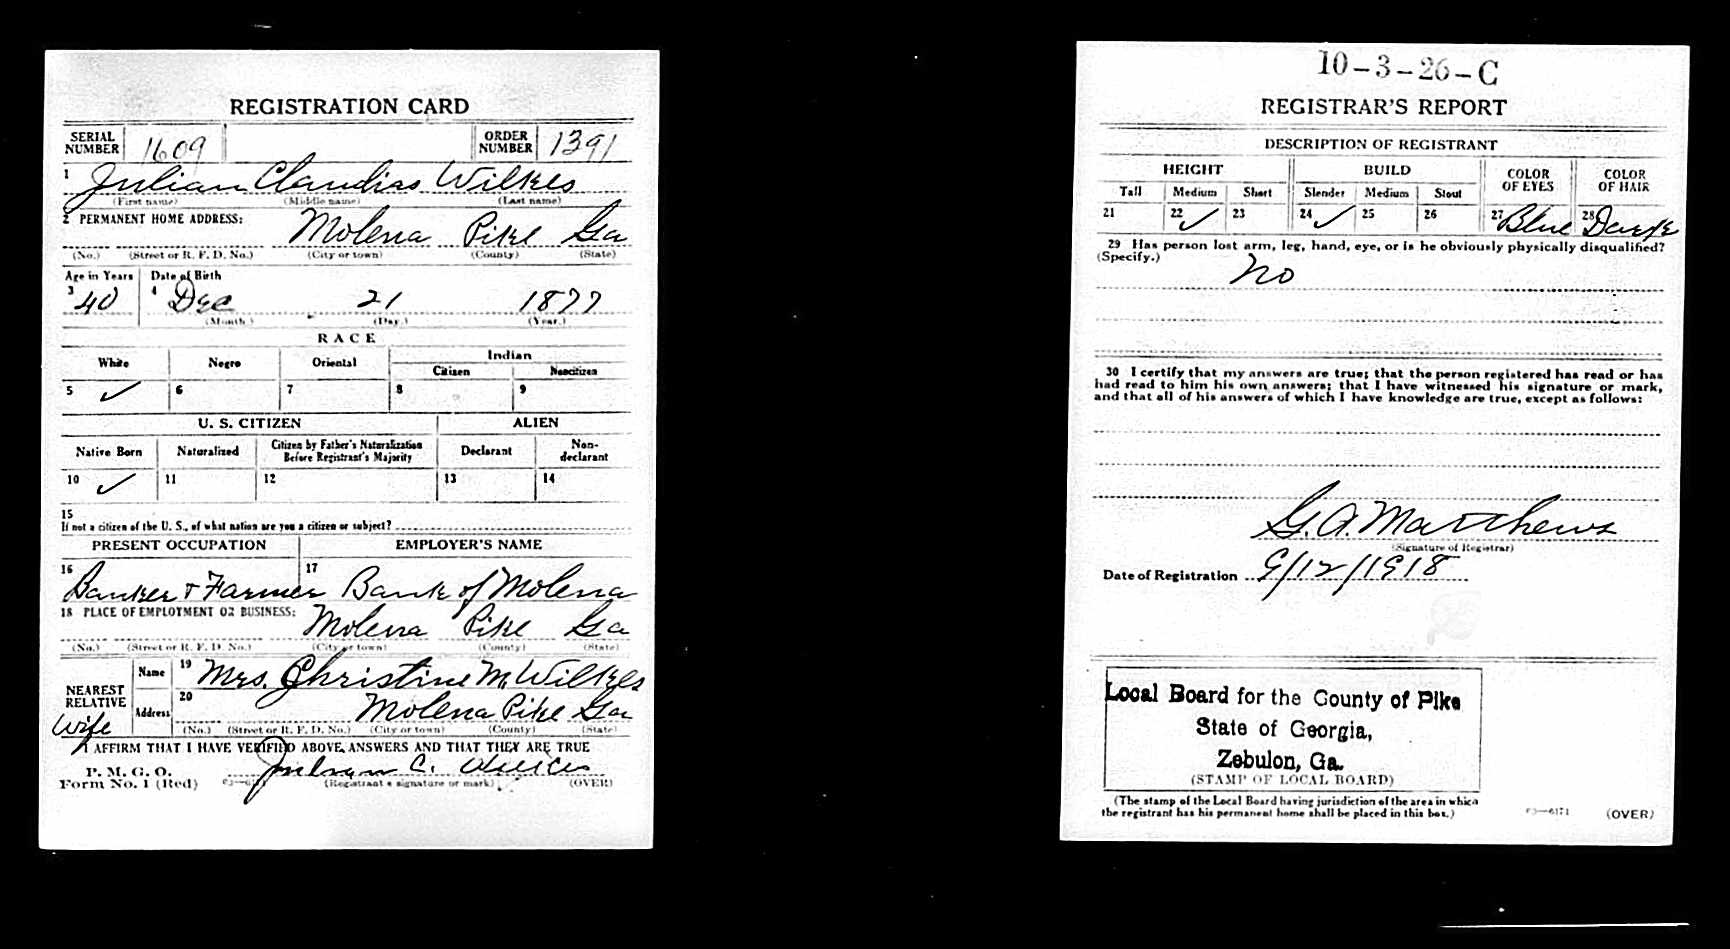 REGISTRATION CARD
SERIAL NUMBER 1609 ORDER NUMBER 1391
1 Julian Claudias Wilkes
(First name) (Middle name) (Last name)
2 PERMANENT HOME ADDRESS:
Molena Pike Ga
(No.) (Street or R. F. D. No.) (City or town) (County) (State)
Age in Years Date of Birth
3 40 4 Dec 21 1877
(Month.) (Day.) (Year.)
RACE
White Negro Oriental Indian
Citizen Noncitizen
5 ✓ 6 7 8 9
U. S. CITIZEN ALIEN
Native Born Naturalized Citizen by Father's Naturalization Before Registrant's Majority Declarant Non-declarant
10 ✓ 11 12 13 14
15
If not a citizen of the U. S., of what nation are you a citizen or subject?
PRESENT OCCUPATION EMPLOYER'S NAME
16 Banker + Farmer 17 Bank of Molena
18 PLACE OF EMPLOYMENT OR BUSINESS:
Molena Pike Ga
(No.) (Street or R. F. D. No.) (City or town) (County) (State)
NEAREST RELATIVE Wife
Name 19 Mrs. Christine M. Wilkes
Address 20 Molena Pike Ga
(No.) (Street or R. F. D. No.) (City or town) (County) (State)
I AFFIRM THAT I HAVE VERIFIED ABOVE ANSWERS AND THAT THEY ARE TRUE
P. M. G. O.
Form No. 1 (Red) Julian C. Wilkes
(Registrant's signature or mark) (OVER)
10-3-26-C
REGISTRAR'S REPORT
DESCRIPTION OF REGISTRANT
HEIGHT BUILD COLOR OF EYES COLOR OF HAIR
Tall Medium Short Slender Medium Stout
21 22 ✓ 23 24 ✓ 25 26 27 Blue 28 Dark
29 Has person lost arm, leg, hand, eye, or is he obviously physically disqualified?
(Specify.)
no
30 I certify that my answers are true; that the person registered has read or has
had read to him his own answers; that I have witnessed his signature or mark,
and that all of his answers of which I have knowledge are true, except as follows:
G. A. Matthews
(Signature of Registrar)
Date of Registration 9/12/1918
Local Board for the County of Pike
State of Georgia,
Zebulon, Ga.
(STAMP OF LOCAL BOARD)
(The stamp of the Local Board having jurisdiction of the area in which
the registrant has his permanent home shall be placed in this box.)
03—6171 (OVER)